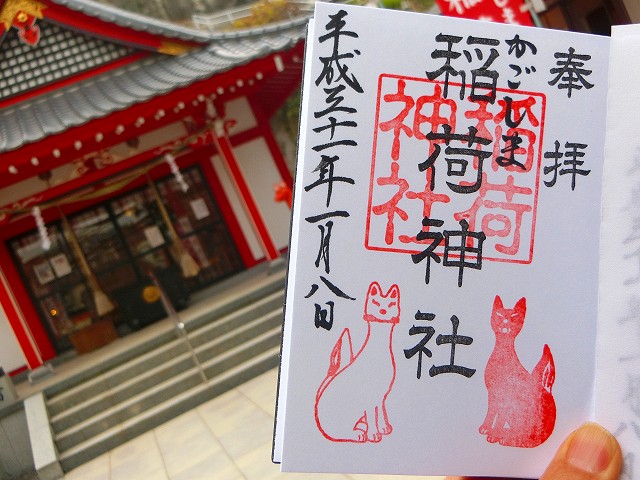 奉拝
かごしま
稲荷神社
稲荷
神社
平成三十一年一月八日